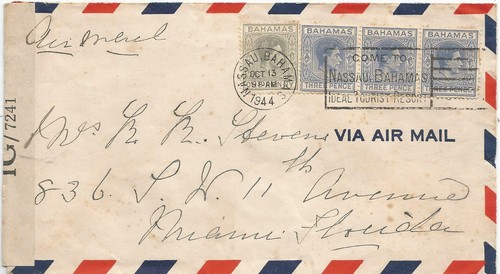 Air mail
BAHAMAS BAHAMAS BAHAMAS BAHAMAS
THREE PENCE THREE PENCE
NASSAU BAHAMAS
OCT 13
9 AM
1944
COME TO
NASSAU BAHAMAS
IDEAL TOURIST RESORT
IG/7241
VIA AIR MAIL
Mrs R. R. Stevens
836 S. W. 11th Avenue
Miami Florida